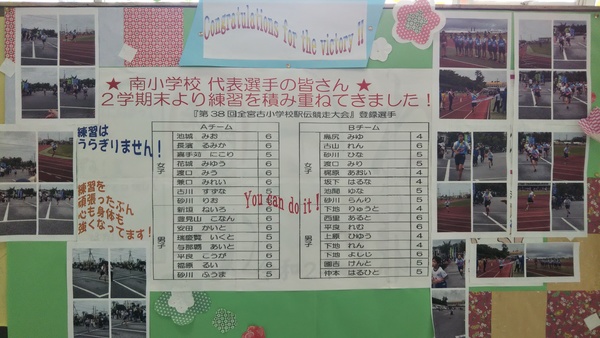 Congratulations for the victory !!
★ 南小学校 代表選手の皆さん ★
２学期末より練習を積み重ねてきました！
『第38回全宮古小学校駅伝競走大会』登録選手
練習は
うらぎりません！
練習を
頑張ったぶん
心も身体も
強くなってます！
You can do it!
Aチーム
女子
池城 みお 6
長濱 るみか 6
喜手苅 にこり 5
花城 みゆう 6
渡口 みう 6
兼口 みれい 6
古川 すずな
砂川 りお
男子
新垣 ねいろ
渡見山 こなん
安田 かいと
瑞慶覧 いくと 6
与那覇 あいと 6
平良 こうが 6
饒原 るい 6
砂川 ふうま 5
Bチーム
女子
島尻 みゆ 4
古山 れん 6
砂川 ひな 5
渡口 みり 5
梶原 あおい 4
坂下 はるな 4
池間 ゆな 5
砂川 らんり 5
男子
下地 りゅうと 4
西里 あると 6
平良 れむ 6
上原 ひゆう 4
下地 れん 4
下地 よしじ 6
園吉 けんと 5
仲本 はるひと 5